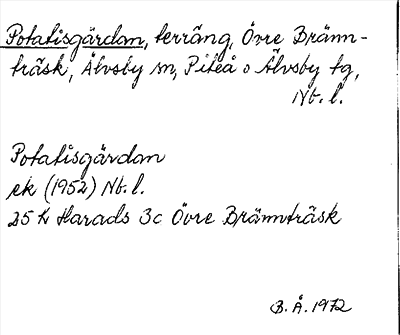 Potatisgärdan, terräng, Övre Bränn-
träsk, Älvsby sn, Piteå o Älvsby tg,
Nb. l.
Potatisgärdan
ek (1952) Nb. l.
25 K Harads 3c Övre Brännträsk
B. Å. 1972